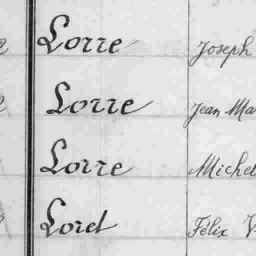 Lorre Joseph
Lorre Jean Ma
Lorre Michel
Loret Félix V